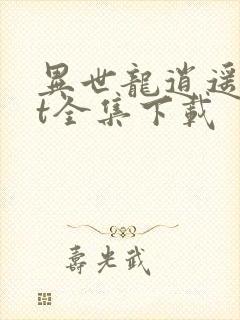 異世龍逍遥
t全集下載
壽光武